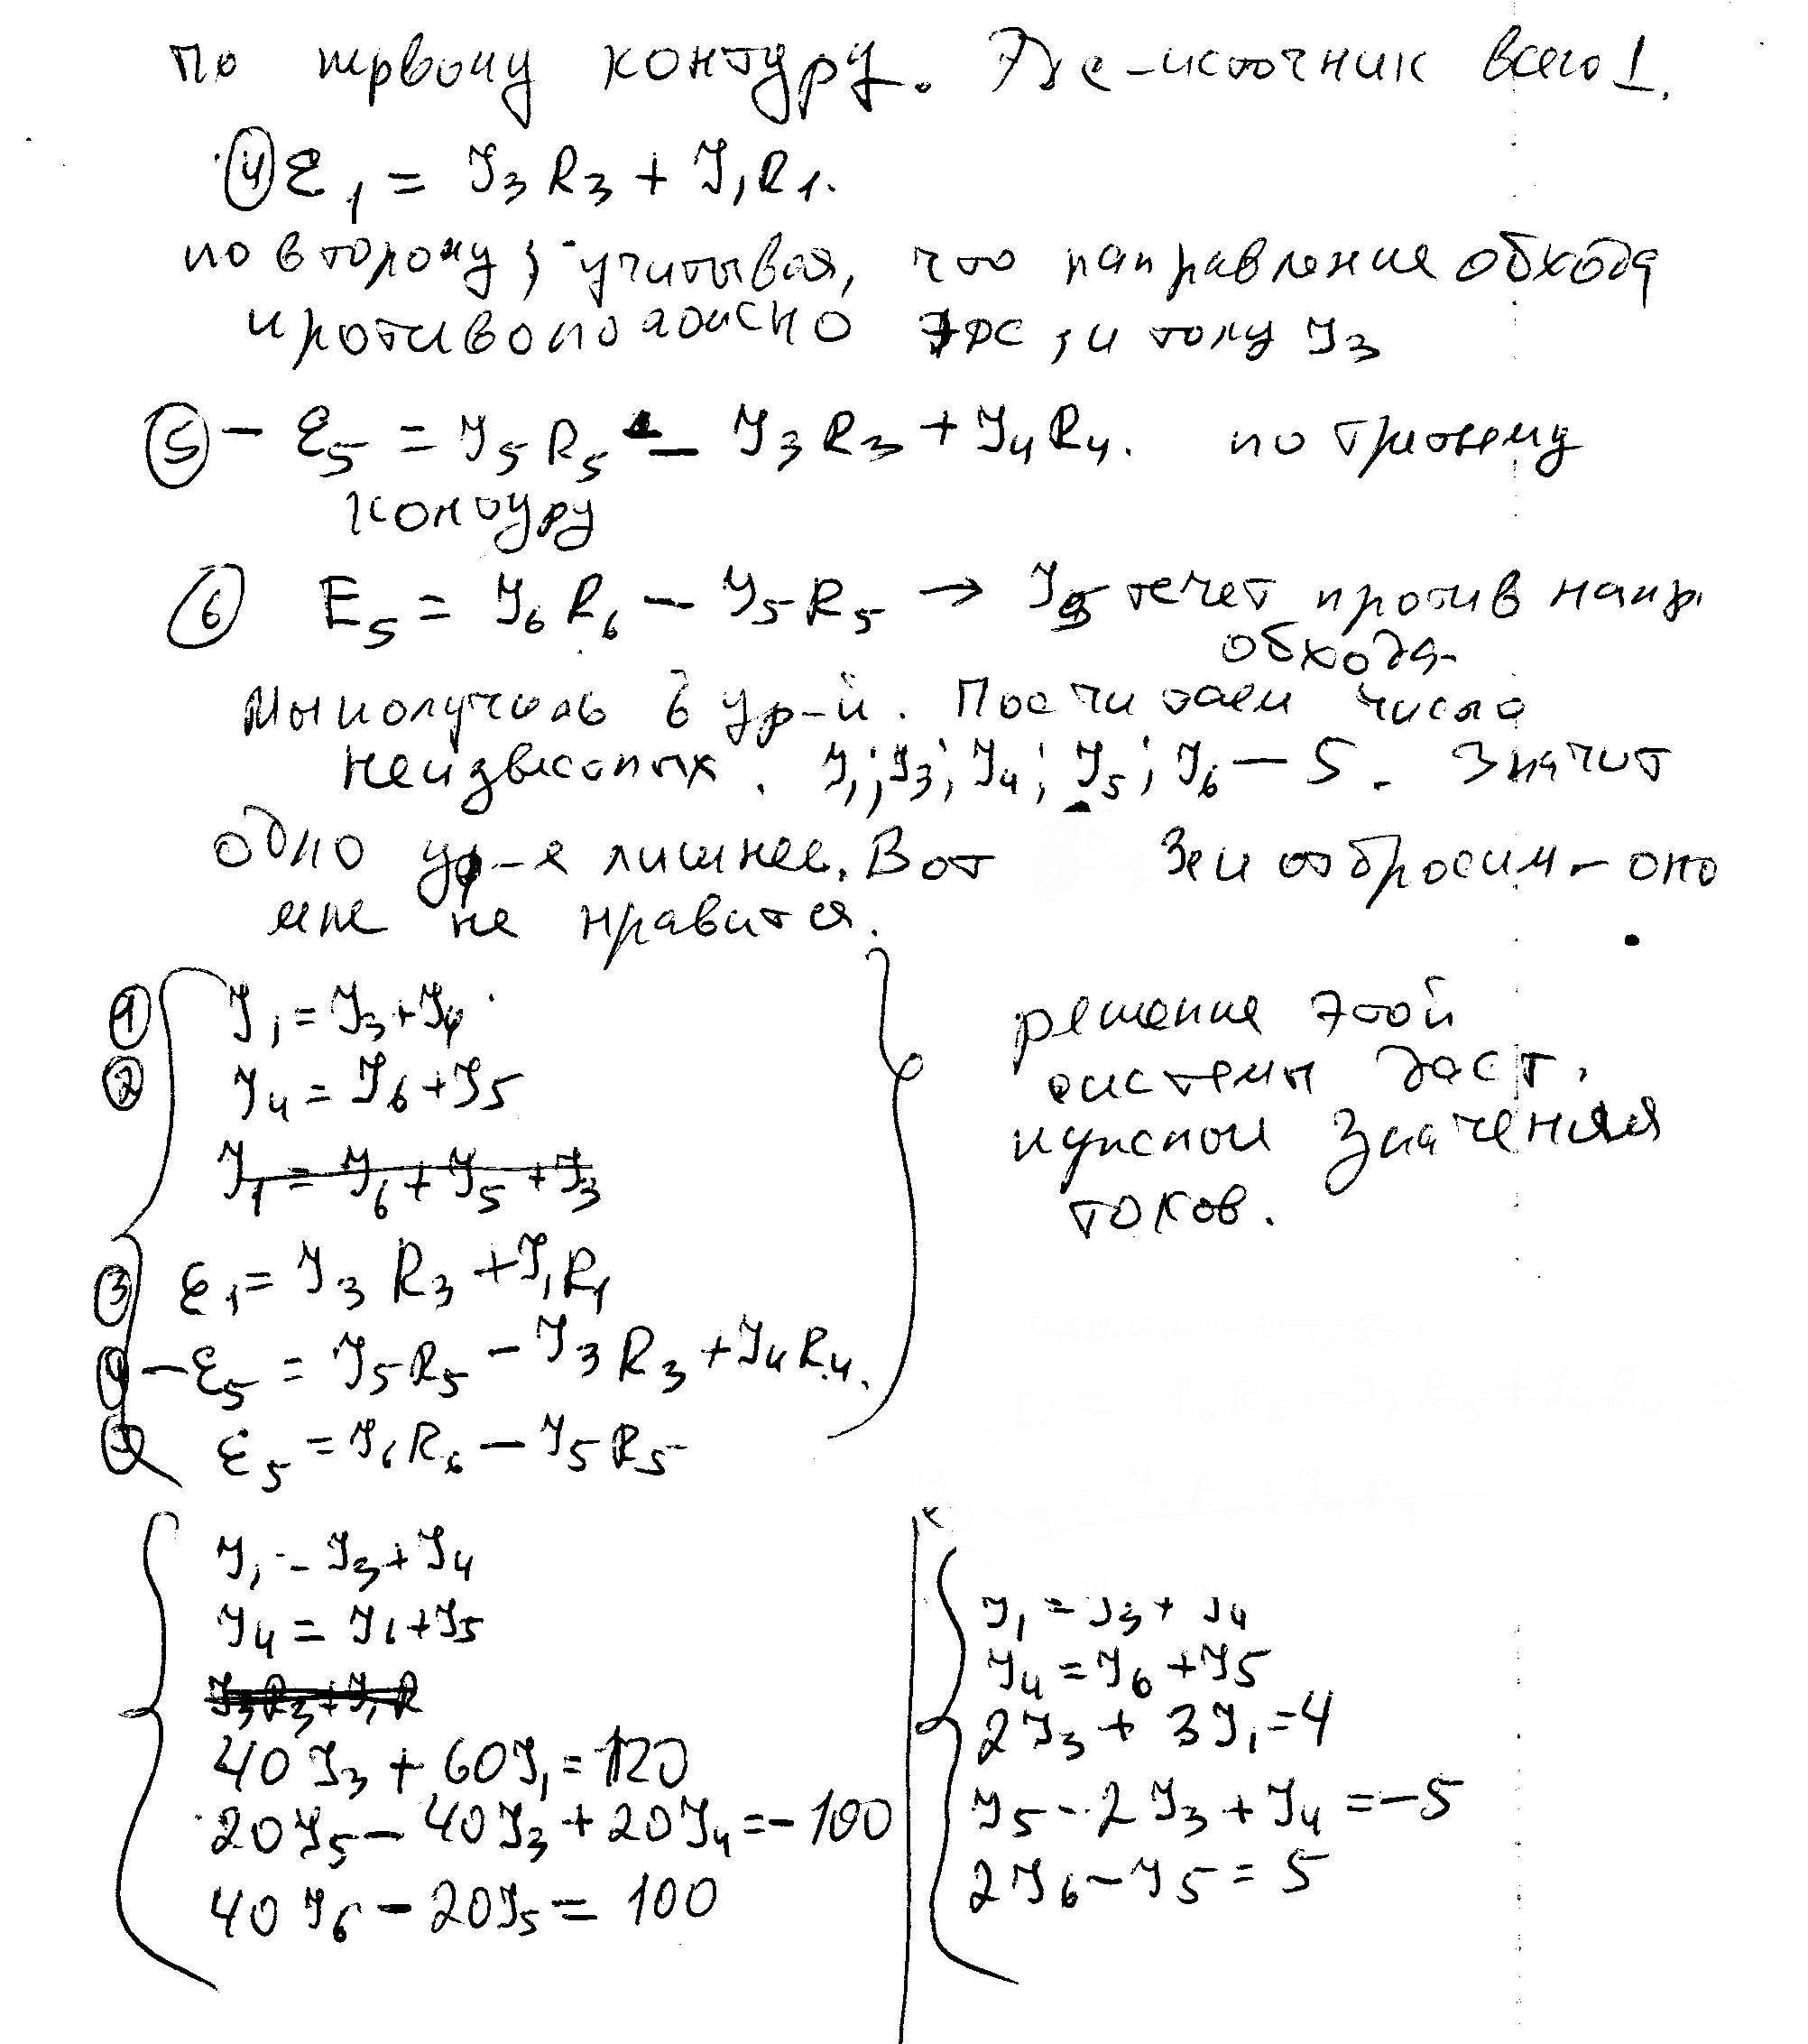 по первому контуру. Эдс-источник всего 1.
④ ℰ1 = J3R3 + J1R1.
по второму, учитывая, что направление обхода
противоположно ЭДС, и току J3
⑤ - ℰ5 = J5R5 - J3R3 + J4R4. по третьему
контуру
⑥ E5 = J6R6 - J5R5 → J5 течет против напр.
обхода
Мы получили 6 ур-й. Посчитаем число
неизвестных. J1; J3; J4; J5; J6 - 5. Значит
одно ур-е лишнее. Вот 3е и отбросим - оно
мне не нравится.
① J1 = J3 + J4
② J4 = J6 + J5
J1 = J6 + J5 + J3
③ ℰ1 = J3R3 + J1R1
④ -ℰ5 = J5R5 - J3R3 + J4R4.
⑤ ℰ5 = J6R6 - J5R5
решение этой
системы даст
нужные значения
токов.
J1 = J3 + J4
J4 = J6 + J5
J3R3 + J1R
40J3 + 60J1 = 120
20J5 - 40J3 + 20J4 = -100
40J6 - 20J5 = 100
J1 = J3 + J4
J4 = J6 + J5
2J3 + 3J1 = 4
J5 - 2J3 + J4 = -5
2J6 - J5 = 5